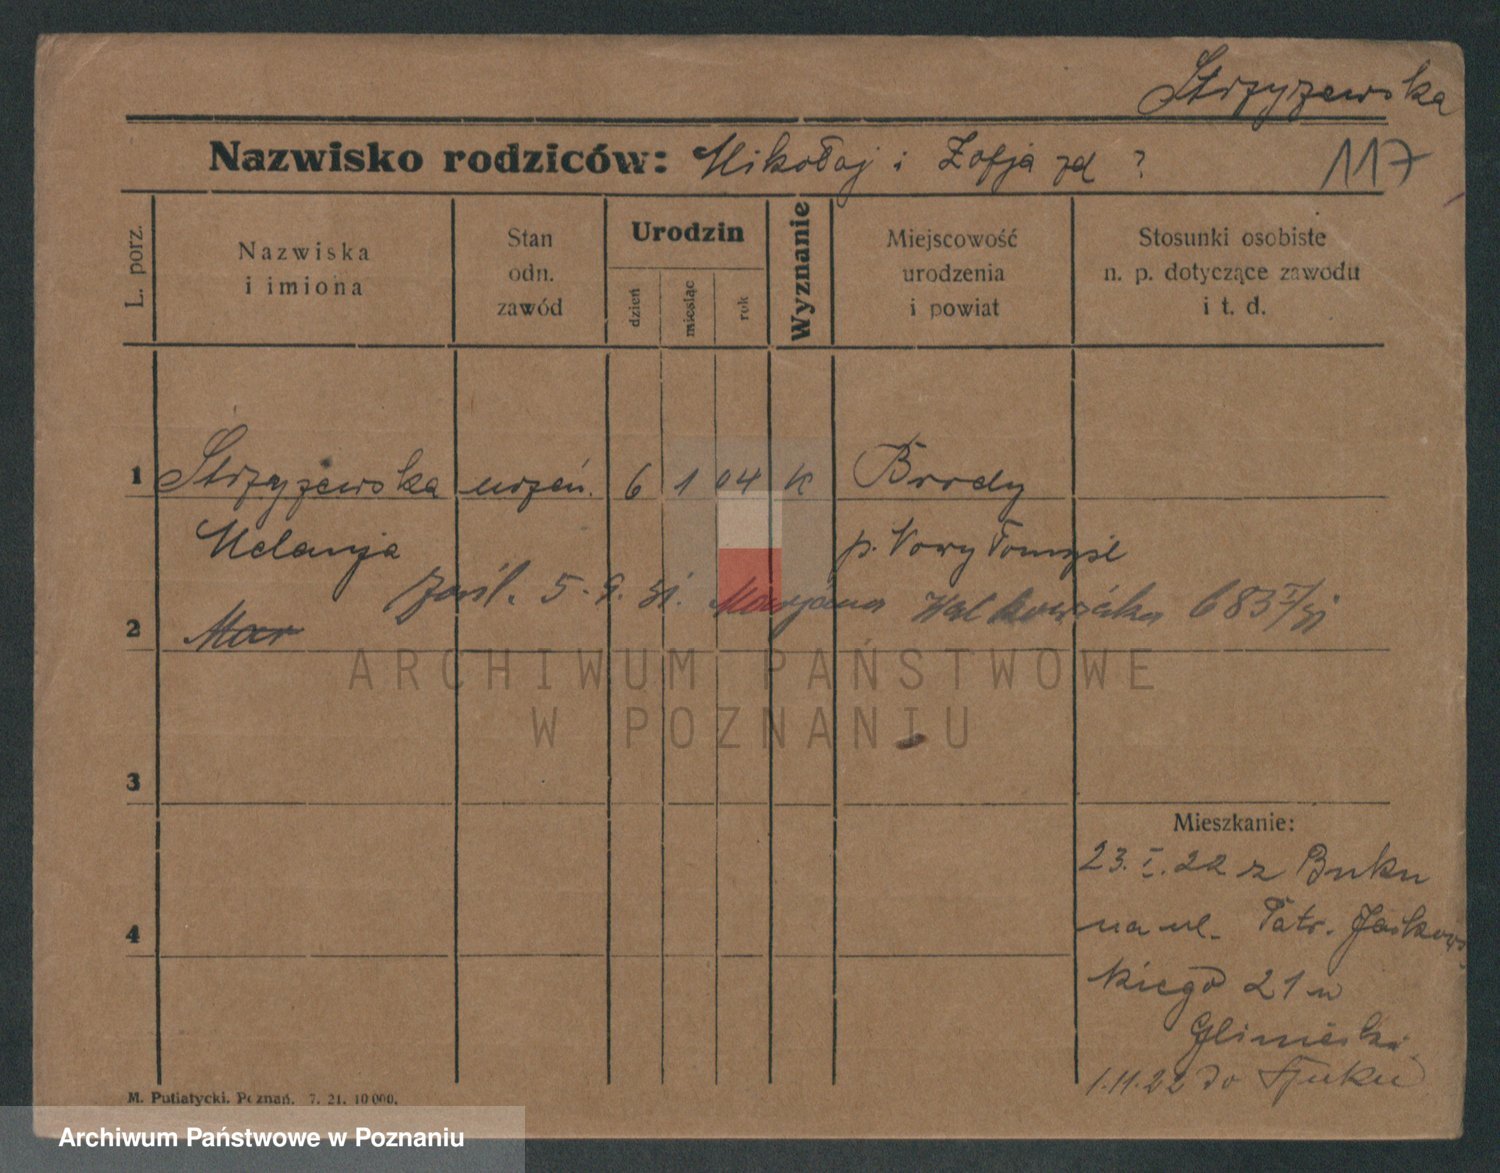 Strzyżewska
Nazwisko rodziców: Mikołaj i Zofja zd ?
117
L. porz.
Nazwiska
i imiona
Stan
odn.
zawód
Urodzin
dzień
miesiąc
rok
Wyznanie
Miejscowość
urodzenia
i powiat
Stosunki osobiste
n. p. dotyczące zawodu
i t. d.
1 Strzyżewska uczeń. 6 1 04 K Brody
Melanja p. Nowy Tomyśl
5. 9. 31. Marjana
2 Mar
ARCHIWUM PAŃSTWOWE
W POZNANIU
3
Mieszkanie:
23. I. 22 z Buku
na ul. Patr. Jackows
4
kiego 21 u
1.11.22 do Buku
M. Putiatycki. Poznań. 7. 21. 10 000.
Archiwum Państwowe w Poznaniu